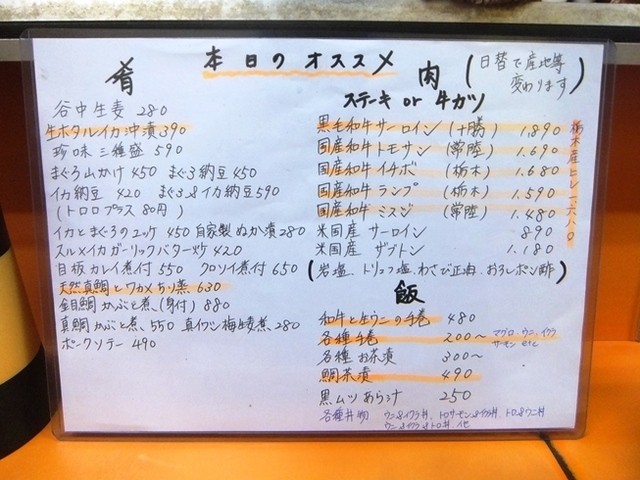 本日のオススメ
肴
谷中生姜 280
生ホタルイカ沖漬 390
珍味三種盛 590
まぐろ山かけ 450 まぐろ納豆 450
イカ納豆 420 まぐろ&イカ納豆 590
(トロロプラス 80円)
イカとまぐろのユッケ 450 自家製ぬか漬 280
スルメイカガーリックバター炒 420
目板カレイ煮付 550 クロソイ煮付 650
天然真鯛とワカメちり蒸 630
金目鯛かぶと煮(身付) 880
真鯛かぶと煮 550 真イワシ梅生姜煮 280
ポークソテー 490
肉
(日替で産地等
変わります)
ステーキ or 牛カツ
黒毛和牛サーロイン (十勝) 1.890
国産和牛トモサン (常陸) 1.690
国産和牛イチボ (栃木) 1.680
国産和牛ランプ (栃木) 1.590
国産和牛ミスジ (常陸) 1.480
米国産 サーロイン 890
米国産 ザブトン 1.180
(岩塩、トリュフ塩、わさび正油、おろしポン酢)
栃木産ヒレ一六八〇
飯
和牛と生ウニの手巻 480
各種手巻 200〜 マグロ、ウニ、イクラ
サーモン etc
各種お茶漬 300〜
鯛茶漬 490
黒ムツあら汁 250
各種丼物 ウニ&イクラ丼、トロサーモン&イクラ丼、トロ&ウニ丼
ウニ&イクラ&トロ丼、他